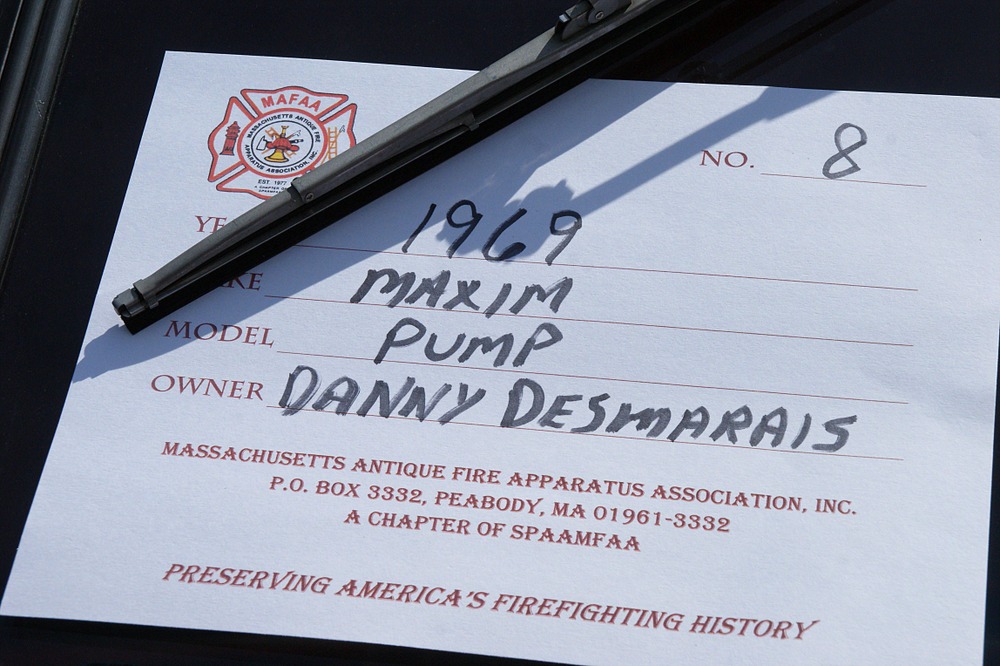 MAFAA
MASSACHUSETTS ANTIQUE FIRE
APPARATUS ASSOCIATION, INC.
EST. 1977
A CHAPTER OF
SPAAMFAA
NO. 8
1969
MAXIM
MODEL PUMP
OWNER DANNY DESMARAIS
MASSACHUSETTS ANTIQUE FIRE APPARATUS ASSOCIATION, INC.
P.O. BOX 3332, PEABODY, MA 01961-3332
A CHAPTER OF SPAAMFAA
PRESERVING AMERICA'S FIREFIGHTING HISTORY